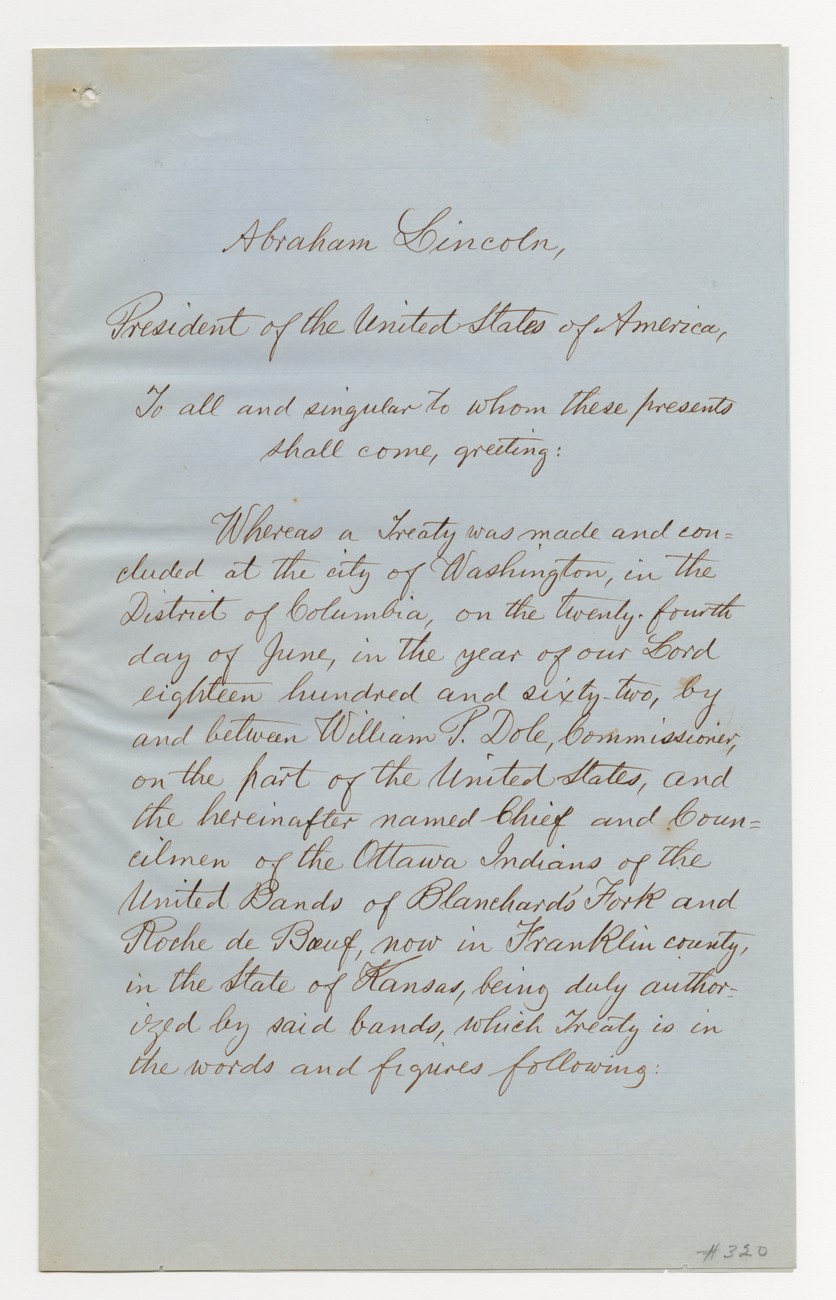 Abraham Lincoln,
President of the United States of America,
To all and singular to whom these presents
shall come, greeting:
Whereas a Treaty was made and con=
cluded at the city of Washington, in the
District of Columbia, on the twenty-fourth
day of June, in the year of our Lord
eighteen hundred and sixty-two, by
and between William P. Dole, Commissioner,
on the part of the United States, and
the hereinafter named Chief and Coun=
cilmen of the Ottawa Indians of the
United Bands of Blanchard's Fork and
Roche de Bœuf, now in Franklin county,
in the State of Kansas, being duly author=
ized by said bands, which Treaty is in
the words and figures following:
#320